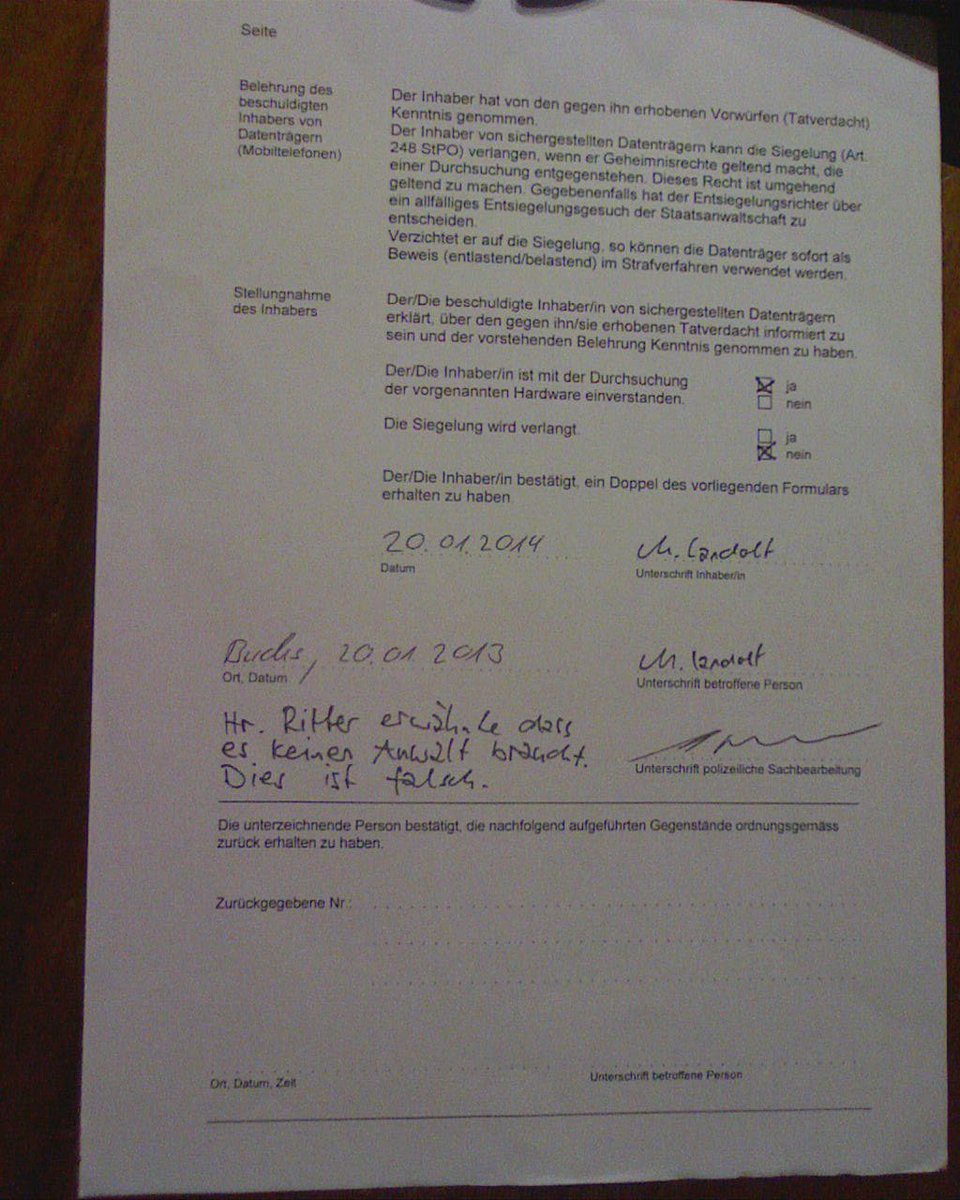 Seite
Belehrung des
beschuldigten
Inhabers von
Datenträgern
(Mobiltelefonen)
Der Inhaber hat von den gegen ihn erhobenen Vorwürfen (Tatverdacht)
Kenntnis genommen.
Der Inhaber von sichergestellten Datenträgern kann die Siegelung (Art.
248 StPO) verlangen, wenn er Geheimnisrechte geltend macht, die
einer Durchsuchung entgegenstehen. Dieses Recht ist umgehend
geltend zu machen. Gegebenenfalls hat der Entsiegelungsrichter über
ein allfälliges Entsiegelungsgesuch der Staatsanwaltschaft zu
entscheiden.
Verzichtet er auf die Siegelung, so können die Datenträger sofort als
Beweis (entlastend/belastend) im Strafverfahren verwendet werden.
Stellungnahme
des Inhabers
Der/Die beschuldigte Inhaber/in von sichergestellten Datenträgern
erklärt, über den gegen ihn/sie erhobenen Tatverdacht informiert zu
sein und der vorstehenden Belehrung Kenntnis genommen zu haben.
Der/Die Inhaber/in ist mit der Durchsuchung
der vorgenannten Hardware einverstanden.
ja
nein
Die Siegelung wird verlangt.
ja
nein
Der/Die Inhaber/in bestätigt, ein Doppel des vorliegenden Formulars
erhalten zu haben.
20.01.2014 M. Landolt
Datum Unterschrift Inhaber/in
Buchs, 20.01.2013 M. Landolt
Ort, Datum Unterschrift betroffene Person
Hr. Ritter erwähnte dass
es keinen Anwalt braucht.
Dies ist falsch.
Unterschrift polizeiliche Sachbearbeitung
Die unterzeichnende Person bestätigt, die nachfolgend aufgeführten Gegenstände ordnungsgemäss
zurück erhalten zu haben.
Zurückgegebene Nr.:
Ort, Datum, Zeit Unterschrift betroffene Person